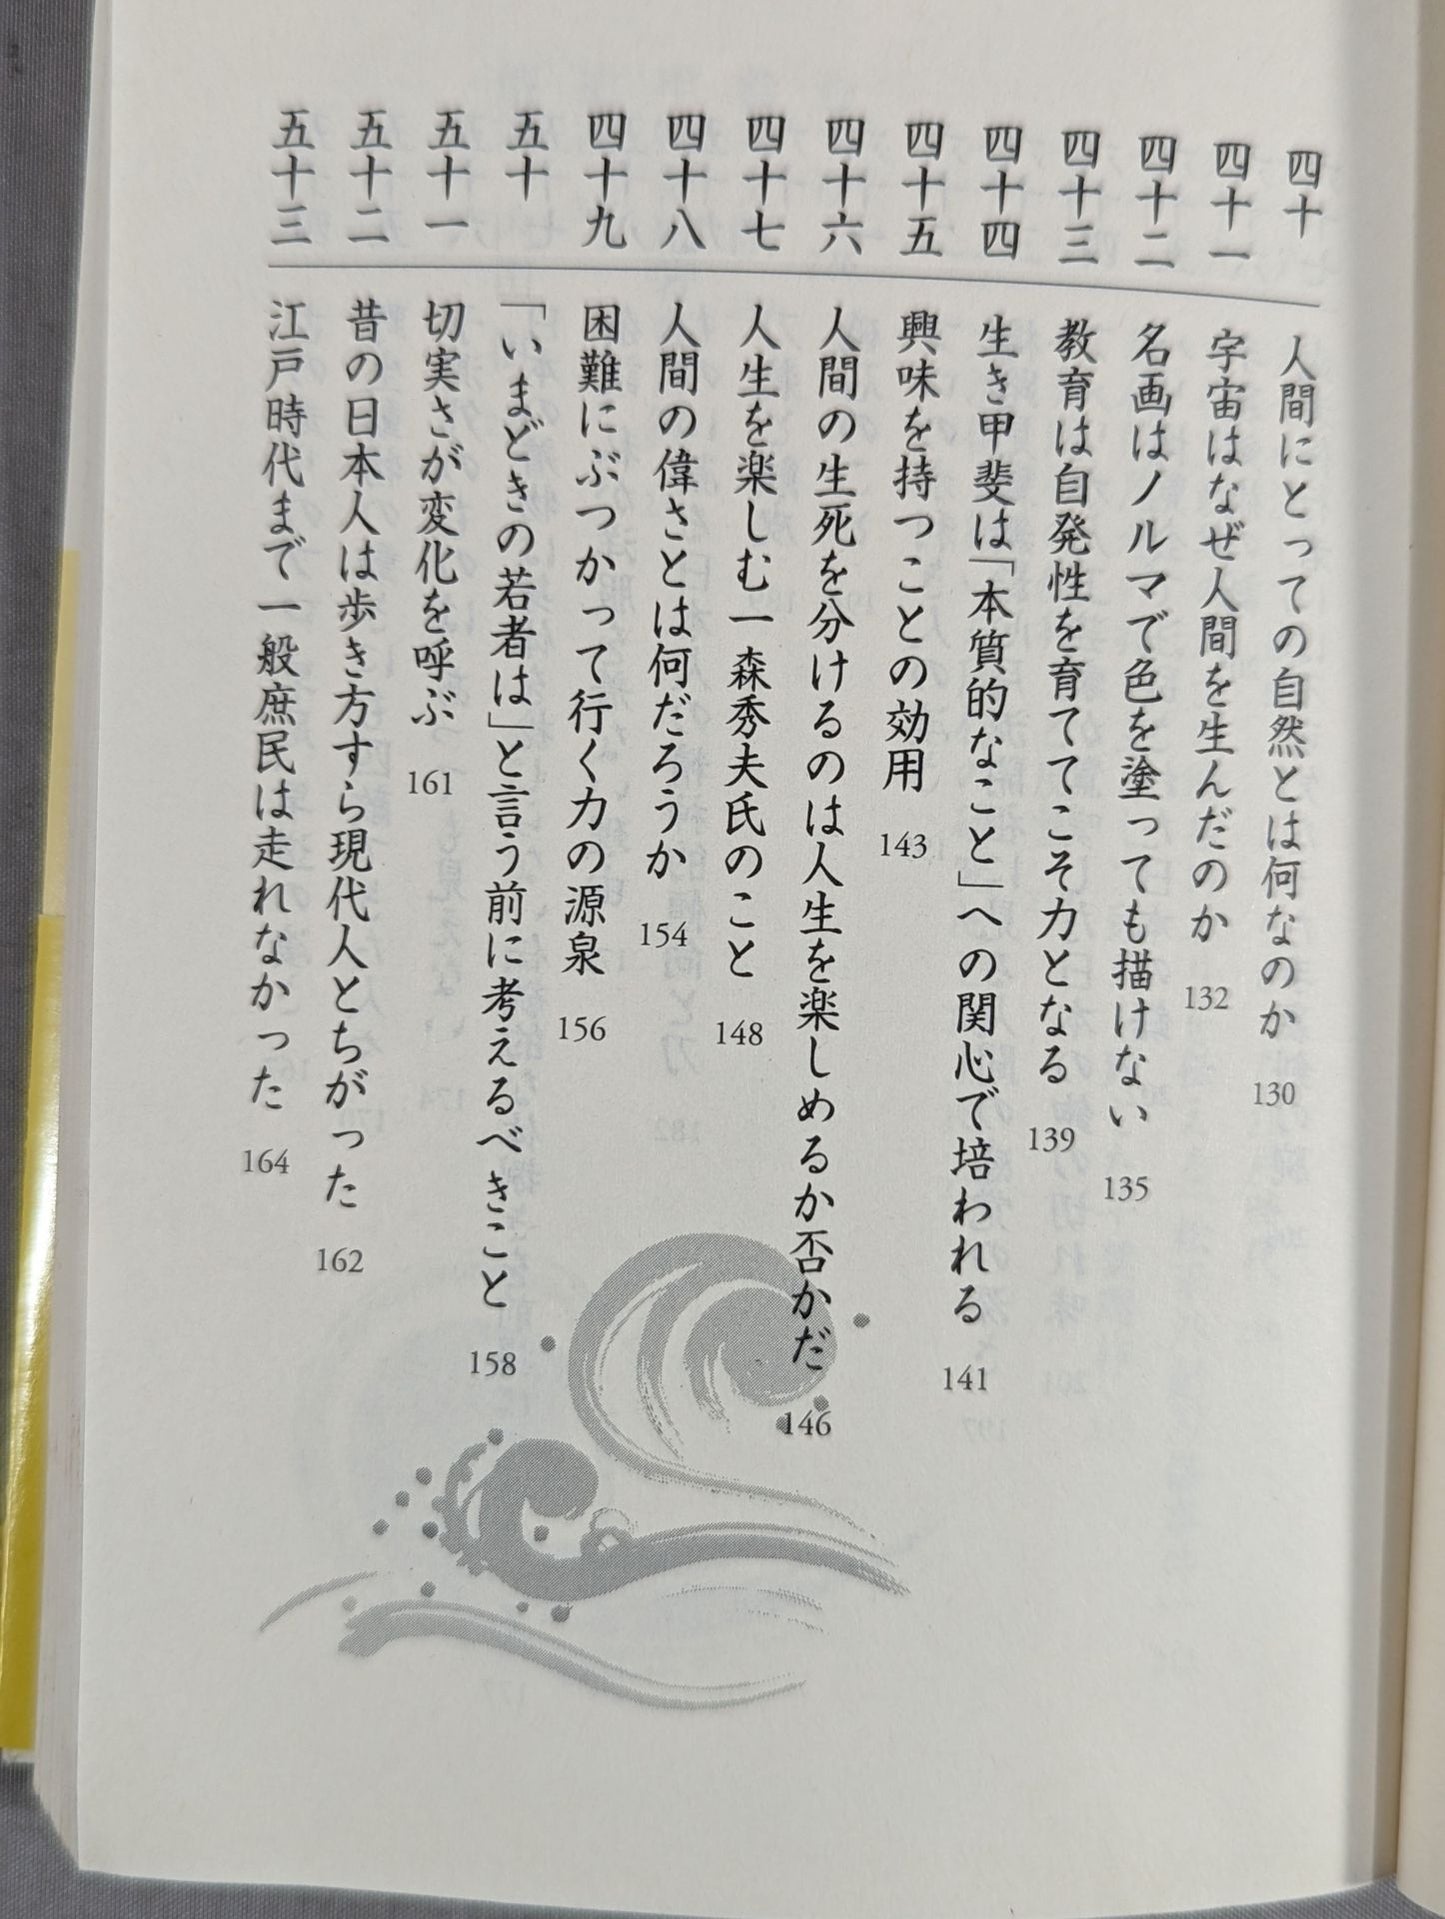 四十 人間にとっての自然とは何なのか 130
四十一 宇宙はなぜ人間を生んだのか 132
四十二 名画はノルマで色を塗っても描けない 135
四十三 教育は自発性を育ててこそ力となる 139
四十四 生き甲斐は「本質的なこと」への関心で培われる 141
四十五 興味を持つことの効用 143
四十六 人間の生死を分けるのは人生を楽しめるか否かだ 146
四十七 人生を楽しむ―森秀夫氏のこと 148
四十八 人間の偉さとは何だろうか 154
四十九 困難にぶつかって行く力の源泉 156
五十 「いまどきの若者は」と言う前に考えるべきこと 158
五十一 切実さが変化を呼ぶ 161
五十二 昔の日本人は歩き方すら現代人とちがった 162
五十三 江戸時代まで一般庶民は走れなかった 164